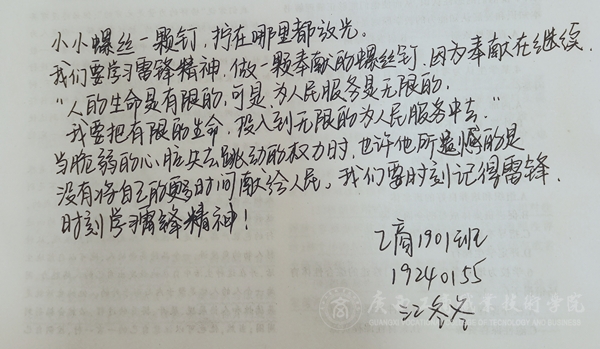 小小螺丝一颗钉，拧在哪里都放光。
我们要学习雷锋精神，做一颗奉献的螺丝钉，因为奉献在继续.
“人的生命是有限的，可是，为人民服务是无限的，
我要把有限的生命，投入到无限的为人民服务中去。”
当脆弱的心脏失去跳动的权力时，也许他所遗憾的是
没有将自己的更多时间献给人民。我们要时刻记得雷锋，
时刻学习雷锋精神！
乙商1901班
19240155
江冬冬